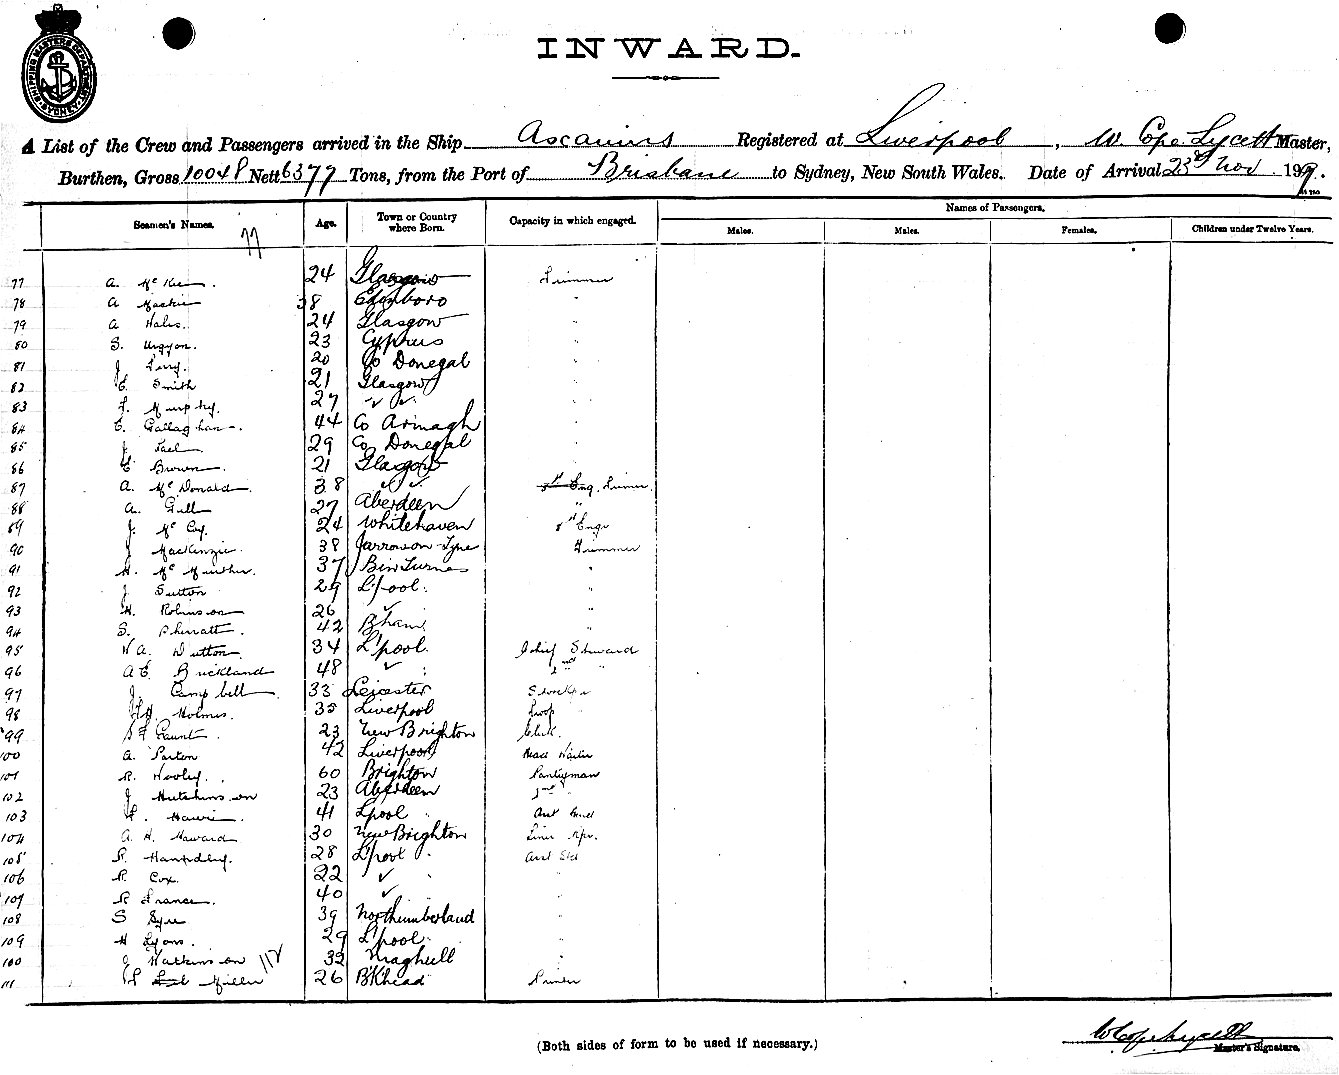 SHIPPING MASTERS DEPARTMENT SYDNEY
INWARD.
A List of the Crew and Passengers arrived in the Ship Ascanius Registered at Liverpool, W. Cope Lycett Master,
Burthen, Gross 10048 Nett 6377 Tons, from the Port of Brisbane to Sydney, New South Wales. Date of Arrival 23rd Nov 191
Names of Passengers.
Seamen's Names. Age. Town or Country where Born. Capacity in which engaged. Males. Males. Females. Children under Twelve Years.
77
77 A. McKee. 24 Glasgow Trimmer
78 A Mackie 38 Edinboro "
79 A Hales. 24 Glasgow "
80 S. 23 Cyprus "
81 J 20 Co Donegal "
82 C. Smith 21 Glasgow "
83 F. Murphy. 27 " " "
84 C. Gallaghan. 44 Co Armagh "
85 J 29 Co Donegal "
86 C Brown. 21 Glasgow "
87 A. McDonald. 38 " " Eng. Trimmer
88 A. Gill 27 Aberdeen "
89 J. McCoy. 24 Whitehaven Engr
90 J MacKenzie. 38 Jarrow-on-Tyne Trimmer
91 H. 37 "
92 J Sutton 29 L'pool. "
93 H. Robinson 26 " "
94 S. Sherratt. 42 B'ham "
95 W A. Dutton. 34 L'pool. Chief Steward
96 A E. Buckland 48 " 2nd "
97 J. Campbell. 33 Leicester
98 Holmes. 35 Liverpool
99 Gaunt. 23 New Brighton Clerk.
100 A. Parton 42 Liverpool Head Waiter
101 R. Wooley. 60 Brighton Pantryman
102 J Hutchinson 23 Aberdeen 2nd "
103 41 Lpool
104 A. H. Haward 30 New Brighton
105 R. Handley. 28 L'pool. Asst Std
106 R. Cox. 22 " "
107 R France. 40 " "
108 S 39 Northumberland "
109 H Lyons. 29 L'pool. "
100 J Watkinson 32 Maghull "
112
111 Miller 26 B'Khead
(Both sides of form to be used if necessary.)
W Cope Lycett
Master's Signature.